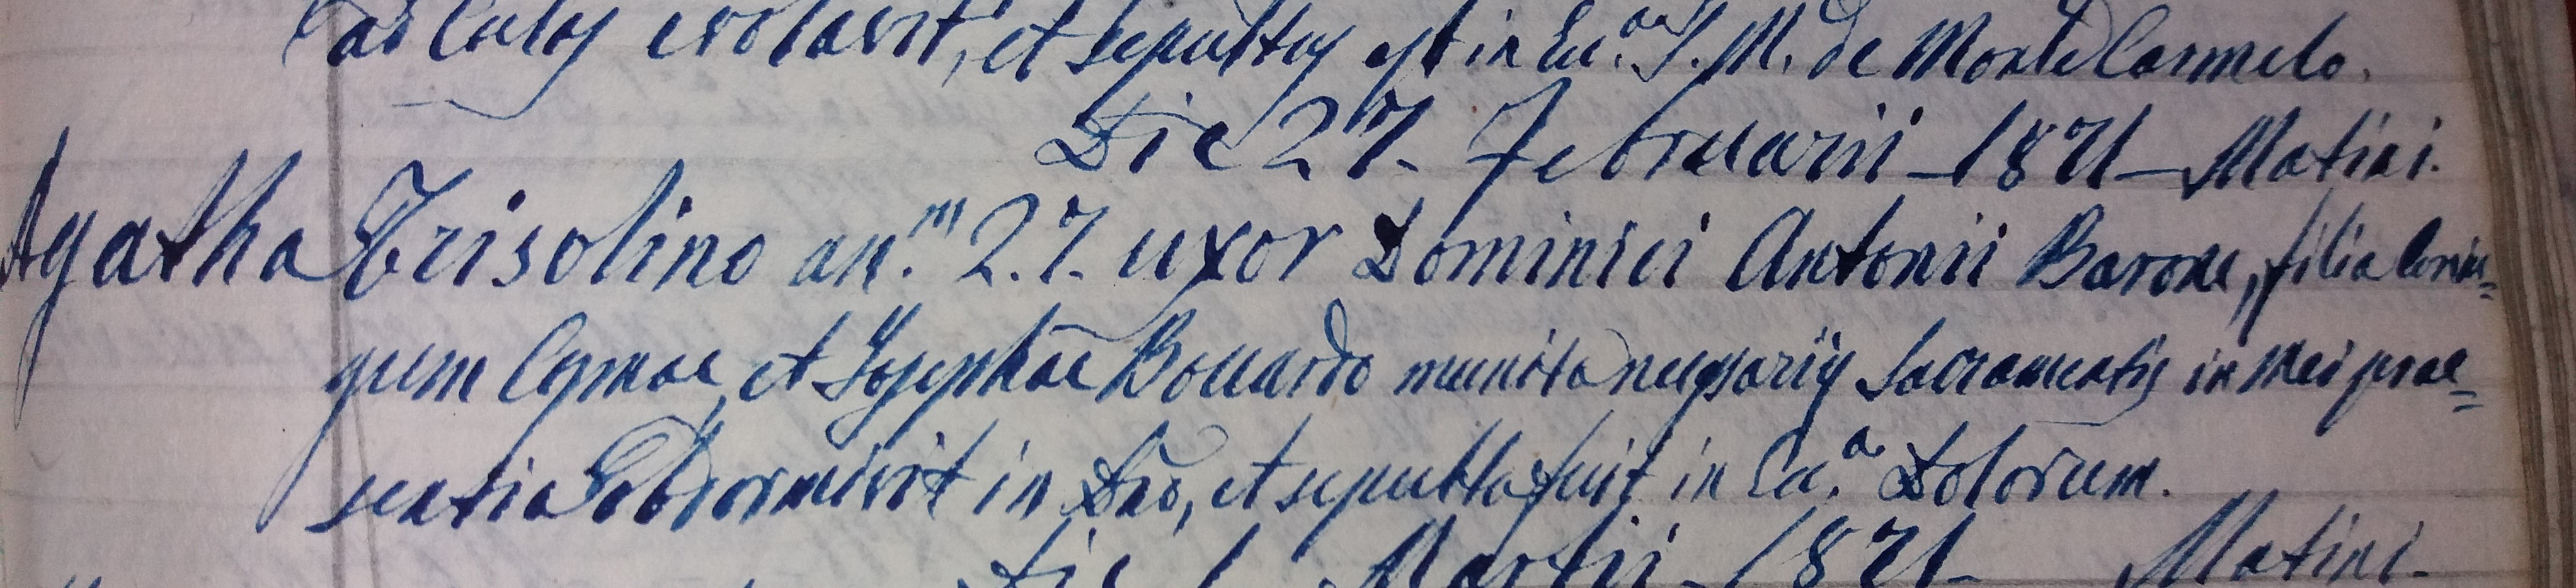 ad Coelos evolavit, et sepultus est in Ecc.a S. M. de Monte Carmelo.
Die 27. Februarii - 1871 - Matini.
Agatha Trisolino an.m 27. uxor Dominici Antonii Barone, filia Coniu=
gum Cosmae, et Josephae Bonardo munita necessariis Sacramentis in mei prae=
sentia Obdormivit in Dno, et sepulta fuit in Ca.a Dolorum.
Die 1 Martii - 1871 - Matini -